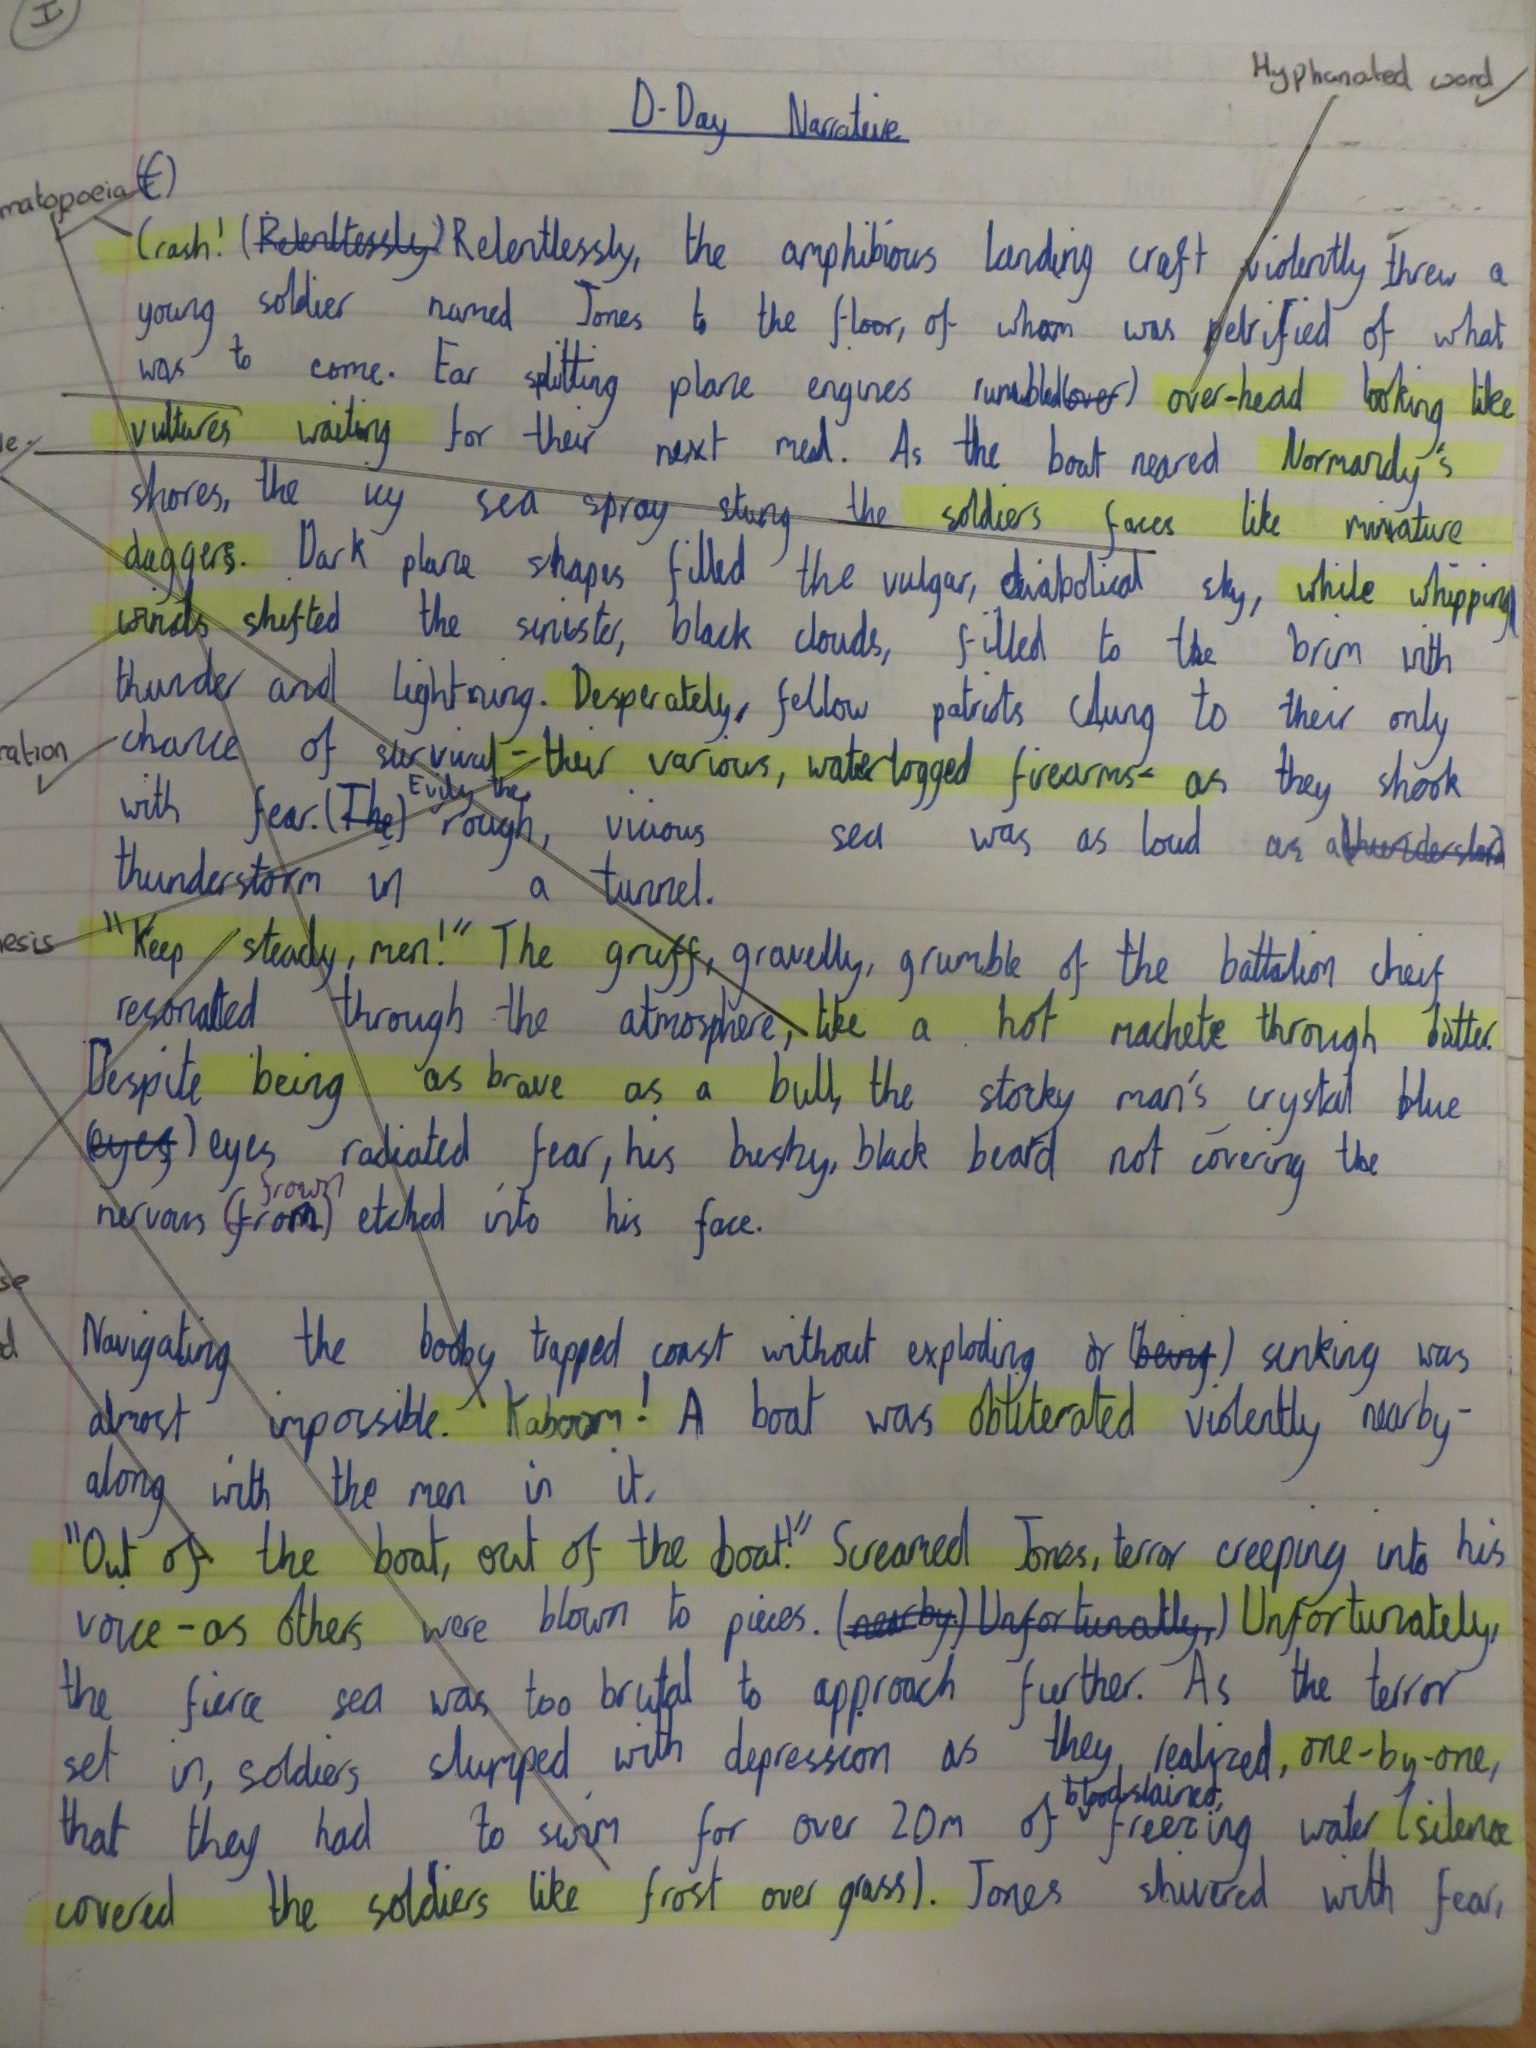 I
Hyphanated word
D-Day Narrative
matopoeia (E)
Crash! (Relentlessly) Relentlessly, the amphibious landing craft violently threw a
young soldier named Jones to the floor, of whom was petrified of what
was to come. Ear splitting plane engines rumbled (over) over-head looking like
vultures waiting for their next meal. As the boat neared Normandy's
shores, the icy sea spray stung the soldiers faces like miniature
daggers. Dark plane shapes filled the vulgar, diabolical sky, while whipping
winds shifted the sinister, black clouds, filled to the brim with
thunder and lightning. Desperately, fellow patriots clung to their only
ration
chance of survival - their various, waterlogged firearms - as they shook
with fear. (The) Evily the rough, vicious sea was as loud as a
thunderstorm in a tunnel.
esis
"Keep steady, men!" The gruff, gravelly, grumble of the battalion cheif
resonated through the atmosphere, like a hot machete through butter.
Despite being as brave as a bull, the stocky man's crystal blue
(eyes) eyes radiated fear, his bushy, black beard not covering the
nervous (from) frown etched into his face.
se
d
Navigating the booby trapped coast without exploding or (being) sinking was
almost impossible. Kaboom! A boat was obliterated violently nearby -
along with the men in it.
"Out of the boat, out of the boat!" Screamed Jones, terror creeping into his
voice - as others were blown to pieces. (nearby) Unfortunatly,) Unfortunately,
the fierce sea was too brutal to approach further. As the terror
set in, soldiers slumped with depression as they realized, one-by-one,
that they had to swim for over 20m of bloodstained, freezing water (silence
covered the soldiers like frost over grass). Jones shivered with fear,